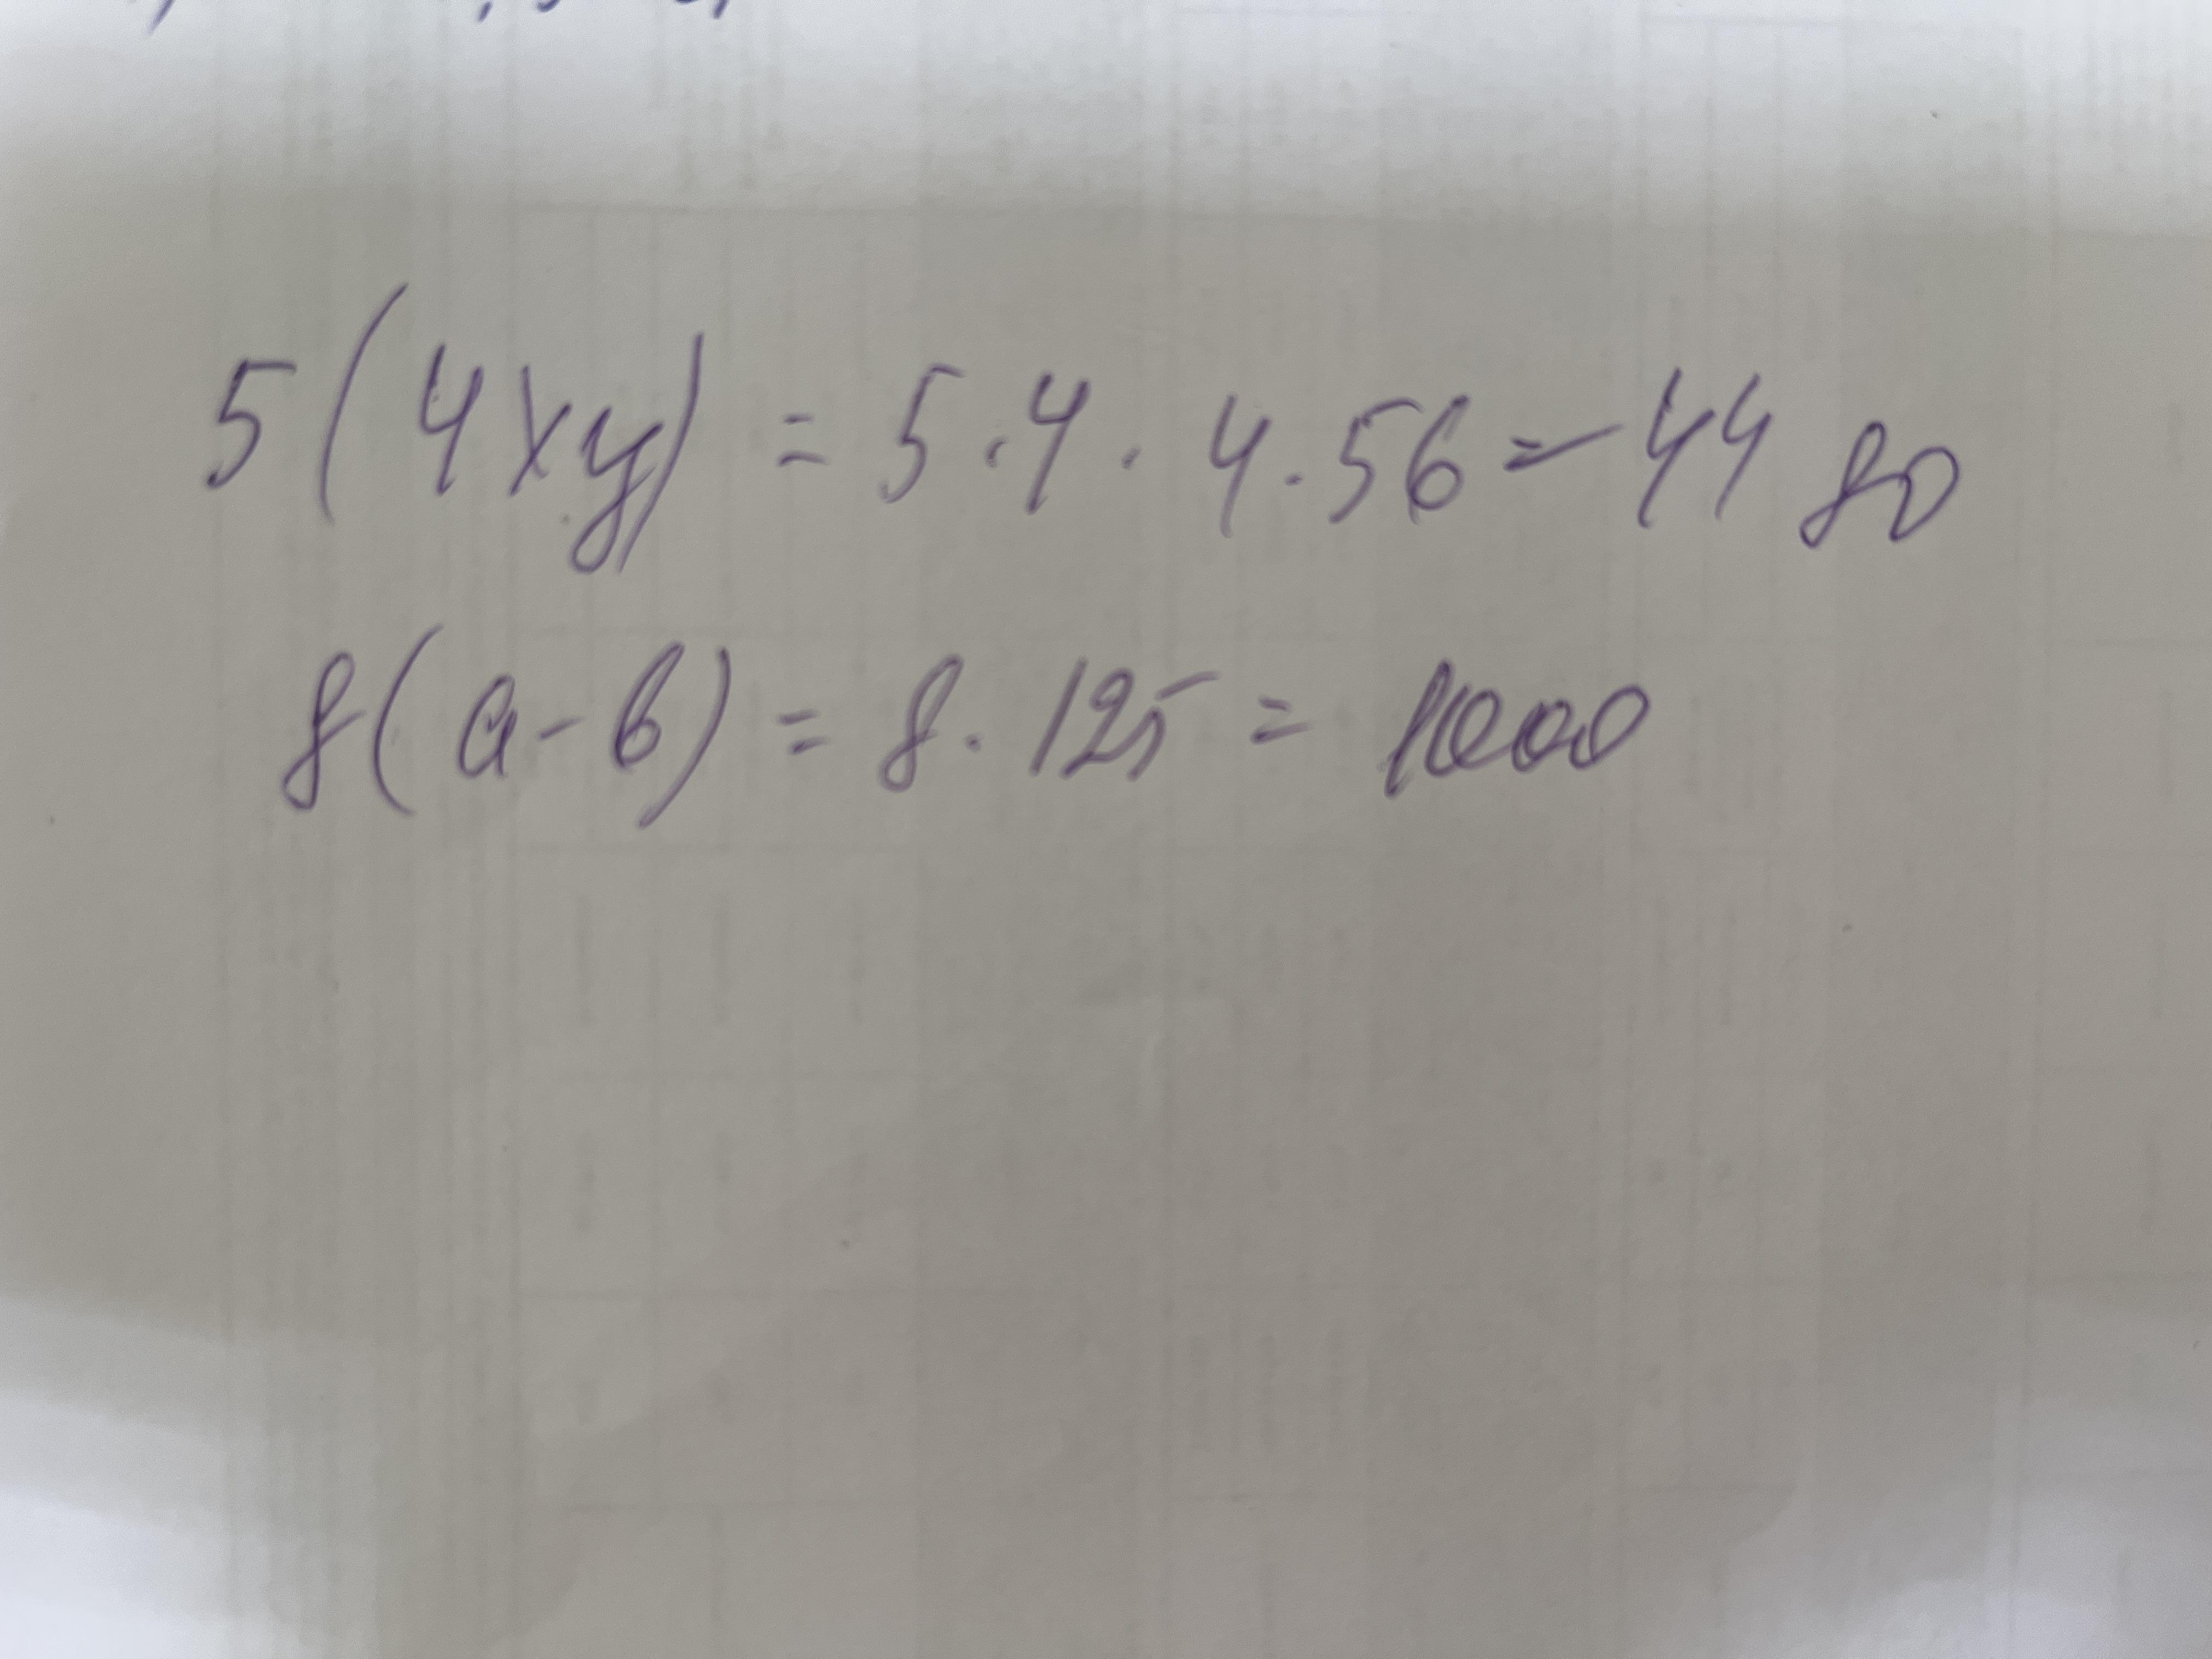 5(4xy) = 5·4·4·56 = 4480
8(a-b) = 8·125 = 1000